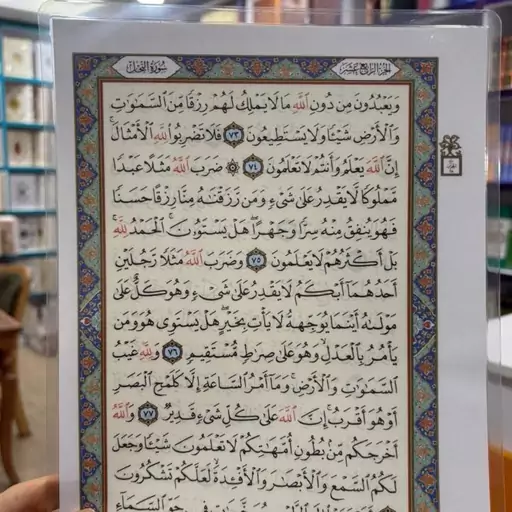 الجزء الرابع عشر
سورة النحل
وَيَعْبُدُونَ مِن دُونِ ٱللَّهِ مَا لَا يَمْلِكُ لَهُمْ رِزْقًا مِّنَ ٱلسَّمَٰوَٰتِ
وَٱلْأَرْضِ شَيْـًٔا وَلَا يَسْتَطِيعُونَ ٧٣ فَلَا تَضْرِبُوا۟ لِلَّهِ ٱلْأَمْثَالَ ۚ
إِنَّ ٱللَّهَ يَعْلَمُ وَأَنتُمْ لَا تَعْلَمُونَ ٧٤ ۞ ضَرَبَ ٱللَّهُ مَثَلًا عَبْدًا
مَّمْلُوكًا لَّا يَقْدِرُ عَلَىٰ شَىْءٍ وَمَن رَّزَقْنَٰهُ مِنَّا رِزْقًا حَسَنًا
فَهُوَ يُنفِقُ مِنْهُ سِرًّا وَجَهْرًا ۖ هَلْ يَسْتَوُۥنَ ۚ ٱلْحَمْدُ لِلَّهِ ۚ
بَلْ أَكْثَرُهُمْ لَا يَعْلَمُونَ ٧٥ وَضَرَبَ ٱللَّهُ مَثَلًا رَّجُلَيْنِ
أَحَدُهُمَآ أَبْكَمُ لَا يَقْدِرُ عَلَىٰ شَىْءٍ وَهُوَ كَلٌّ عَلَىٰ
مَوْلَىٰهُ أَيْنَمَا يُوَجِّههُّ لَا يَأْتِ بِخَيْرٍ ۖ هَلْ يَسْتَوِى هُوَ وَمَن
يَأْمُرُ بِٱلْعَدْلِ ۙ وَهُوَ عَلَىٰ صِرَٰطٍ مُّسْتَقِيمٍ ٧٦ وَلِلَّهِ غَيْبُ
ٱلسَّمَٰوَٰتِ وَٱلْأَرْضِ ۚ وَمَآ أَمْرُ ٱلسَّاعَةِ إِلَّا كَلَمْحِ ٱلْبَصَرِ
أَوْ هُوَ أَقْرَبُ ۚ إِنَّ ٱللَّهَ عَلَىٰ كُلِّ شَىْءٍ قَدِيرٌ ٧٧ وَٱللَّهُ
أَخْرَجَكُم مِّنۢ بُطُونِ أُمَّهَٰتِكُمْ لَا تَعْلَمُونَ شَيْـًٔا وَجَعَلَ
لَكُمُ ٱلسَّمْعَ وَٱلْأَبْصَٰرَ وَٱلْأَفْـِٔدَةَ ۙ لَعَلَّكُمْ تَشْكُرُونَ
فِى جَوِّ ٱلسَّمَآءِ